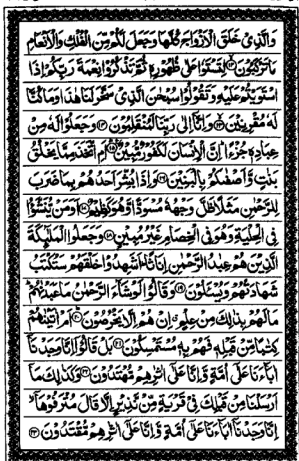 وَالَّذِي خَلَقَ الْأَزْوَاجَ كُلَّهَا وَجَعَلَ لَكُم مِّنَ الْفُلْكِ وَالْأَنْعَامِ
مَا تَرْكَبُونَ ﴿١٢﴾ لِتَسْتَوُوا عَلَىٰ ظُهُورِهِ ثُمَّ تَذْكُرُوا نِعْمَةَ رَبِّكُمْ إِذَا
اسْتَوَيْتُمْ عَلَيْهِ وَتَقُولُوا سُبْحَانَ الَّذِي سَخَّرَ لَنَا هَٰذَا وَمَا كُنَّا
لَهُ مُقْرِنِينَ ﴿١٣﴾ وَإِنَّا إِلَىٰ رَبِّنَا لَمُنقَلِبُونَ ﴿١٤﴾ وَجَعَلُوا لَهُ مِنْ
عِبَادِهِ جُزْءًا إِنَّ الْإِنسَانَ لَكَفُورٌ مُّبِينٌ ﴿١٥﴾ أَمِ اتَّخَذَ مِمَّا يَخْلُقُ
بَنَاتٍ وَأَصْفَاكُم بِالْبَنِينَ ﴿١٦﴾ وَإِذَا بُشِّرَ أَحَدُهُم بِمَا ضَرَبَ
لِلرَّحْمَٰنِ مَثَلًا ظَلَّ وَجْهُهُ مُسْوَدًّا وَهُوَ كَظِيمٌ ﴿١٧﴾ أَوَمَن يُنَشَّأُ
فِي الْحِلْيَةِ وَهُوَ فِي الْخِصَامِ غَيْرُ مُبِينٍ ﴿١٨﴾ وَجَعَلُوا الْمَلَائِكَةَ
الَّذِينَ هُمْ عِبَادُ الرَّحْمَٰنِ إِنَاثًا أَشَهِدُوا خَلْقَهُمْ سَتُكْتَبُ
شَهَادَتُهُمْ وَيُسْأَلُونَ ﴿١٩﴾ وَقَالُوا لَوْ شَاءَ الرَّحْمَٰنُ مَا عَبَدْنَاهُم
مَّا لَهُم بِذَٰلِكَ مِنْ عِلْمٍ إِنْ هُمْ إِلَّا يَخْرُصُونَ ﴿٢٠﴾ أَمْ آتَيْنَاهُمْ
كِتَابًا مِّن قَبْلِهِ فَهُم بِهِ مُسْتَمْسِكُونَ ﴿٢١﴾ بَلْ قَالُوا إِنَّا وَجَدْنَا
آبَاءَنَا عَلَىٰ أُمَّةٍ وَإِنَّا عَلَىٰ آثَارِهِم مُّهْتَدُونَ ﴿٢٢﴾ وَكَذَٰلِكَ مَا
أَرْسَلْنَا مِن قَبْلِكَ فِي قَرْيَةٍ مِّن نَّذِيرٍ إِلَّا قَالَ مُتْرَفُوهَا
إِنَّا وَجَدْنَا آبَاءَنَا عَلَىٰ أُمَّةٍ وَإِنَّا عَلَىٰ آثَارِهِم مُّقْتَدُونَ ﴿٢٣﴾